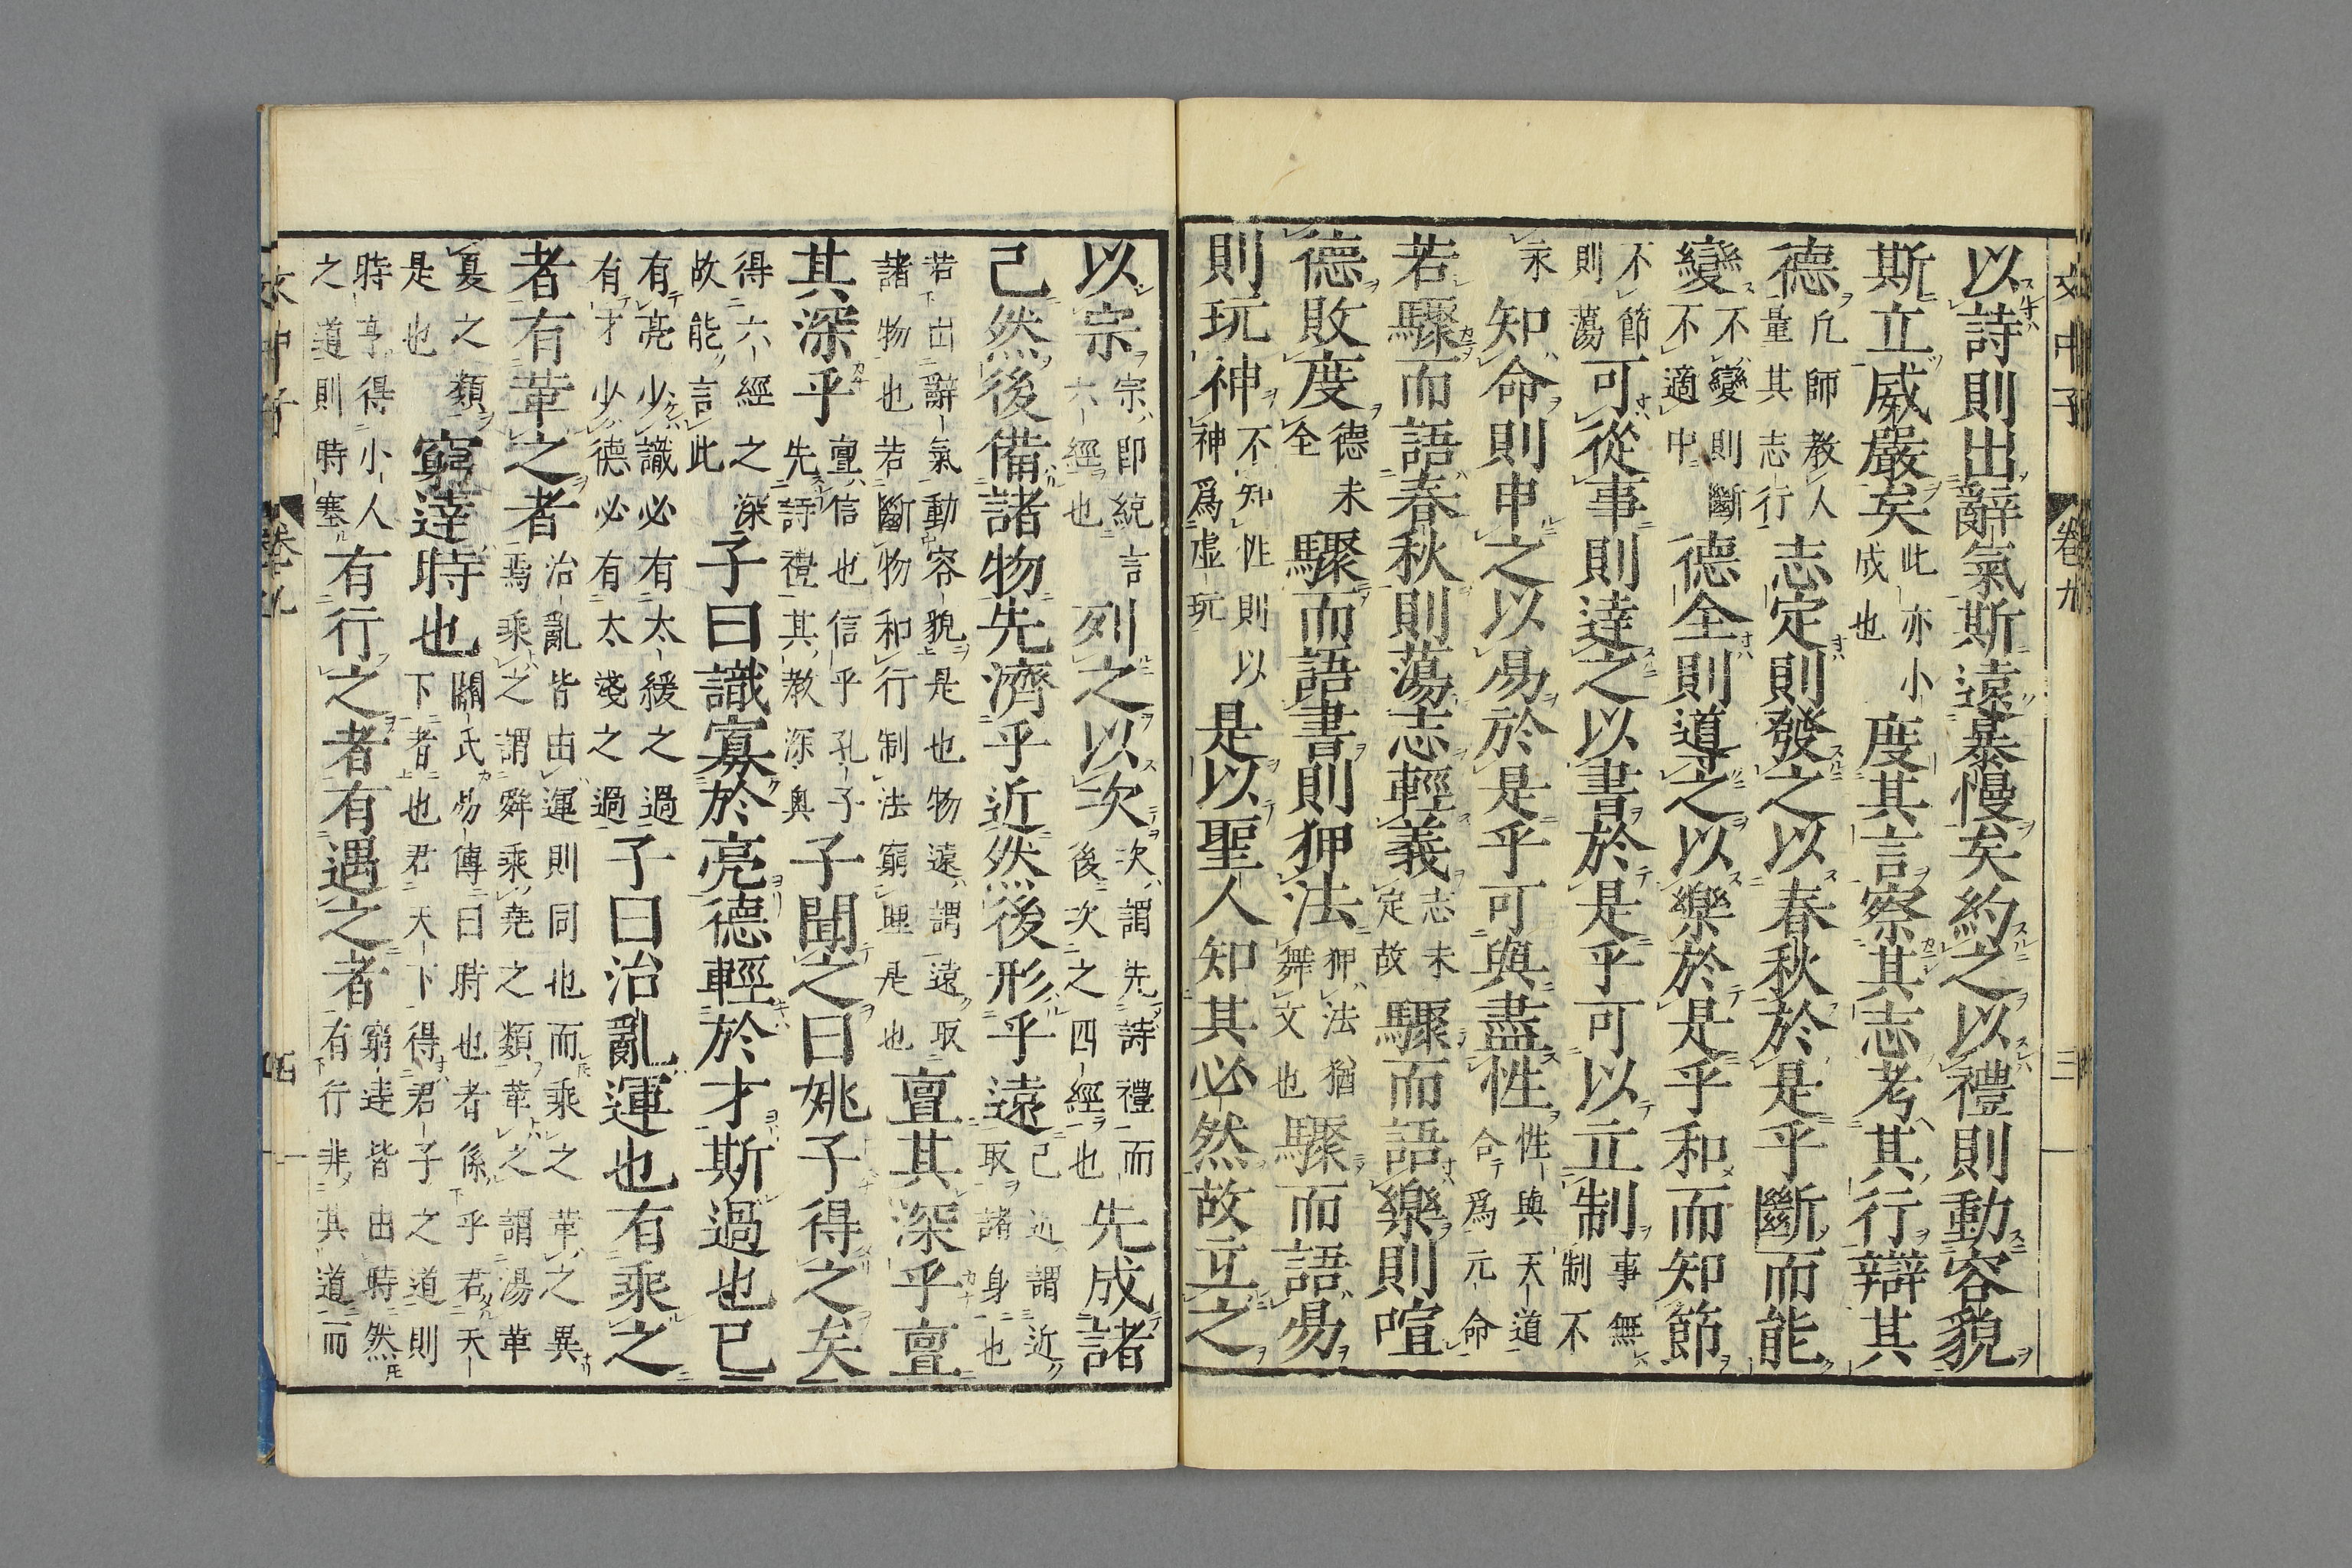 文中子 卷九 三
以詩則出辭氣斯遠暴慢矣約之以禮則動容貌
斯立威嚴矣此亦小成也度其言察其志考其行辯其
德凡師教人量其志行志定則發之以春秋於是乎斷而能
變不變則斷不適中德全則導之以樂於是乎和而知節
不節則蕩可從事則達之以書於是乎可以立制事無制不
永知命則申之以易於是乎可與盡性性與天道合爲元命
若驟而語春秋則蕩志輕義志未定故驟而語樂則喧
德敗度德未全驟而語書則狎法狎法猶舞文也驟而語易
則玩神不知性則以神爲虛玩是以聖人知其必然故立之
以宗宗即統言六經也列之以次次謂先詩禮而後次之四經也先成諸
己然後備諸物先濟乎近然後形乎遠己近謂近取諸身也
若出辭氣動容貌是也物遠謂遠取諸物也若斷物和行制法窮理是也亶其深乎亶
其深乎亶信也信乎孔子先詩禮其教深奧子聞之曰姚子得之矣
得六經之深故能言此子曰識寡於亮德輕於才斯過也已
有亮少識必有太緩之過有才少德必有太淺之過子曰治亂運也有乘之
者有革之者治亂皆由運則同也而乘之革之異焉乘之謂舜乘堯之類革之謂湯革
夏之類是也窮達時也關氏易傳曰時也者係乎君天下者也君天下得君子之道則
時亨得小人之道則時塞有行之者有遇之者窮達皆由時然有行非其道而
文中子 卷九 四